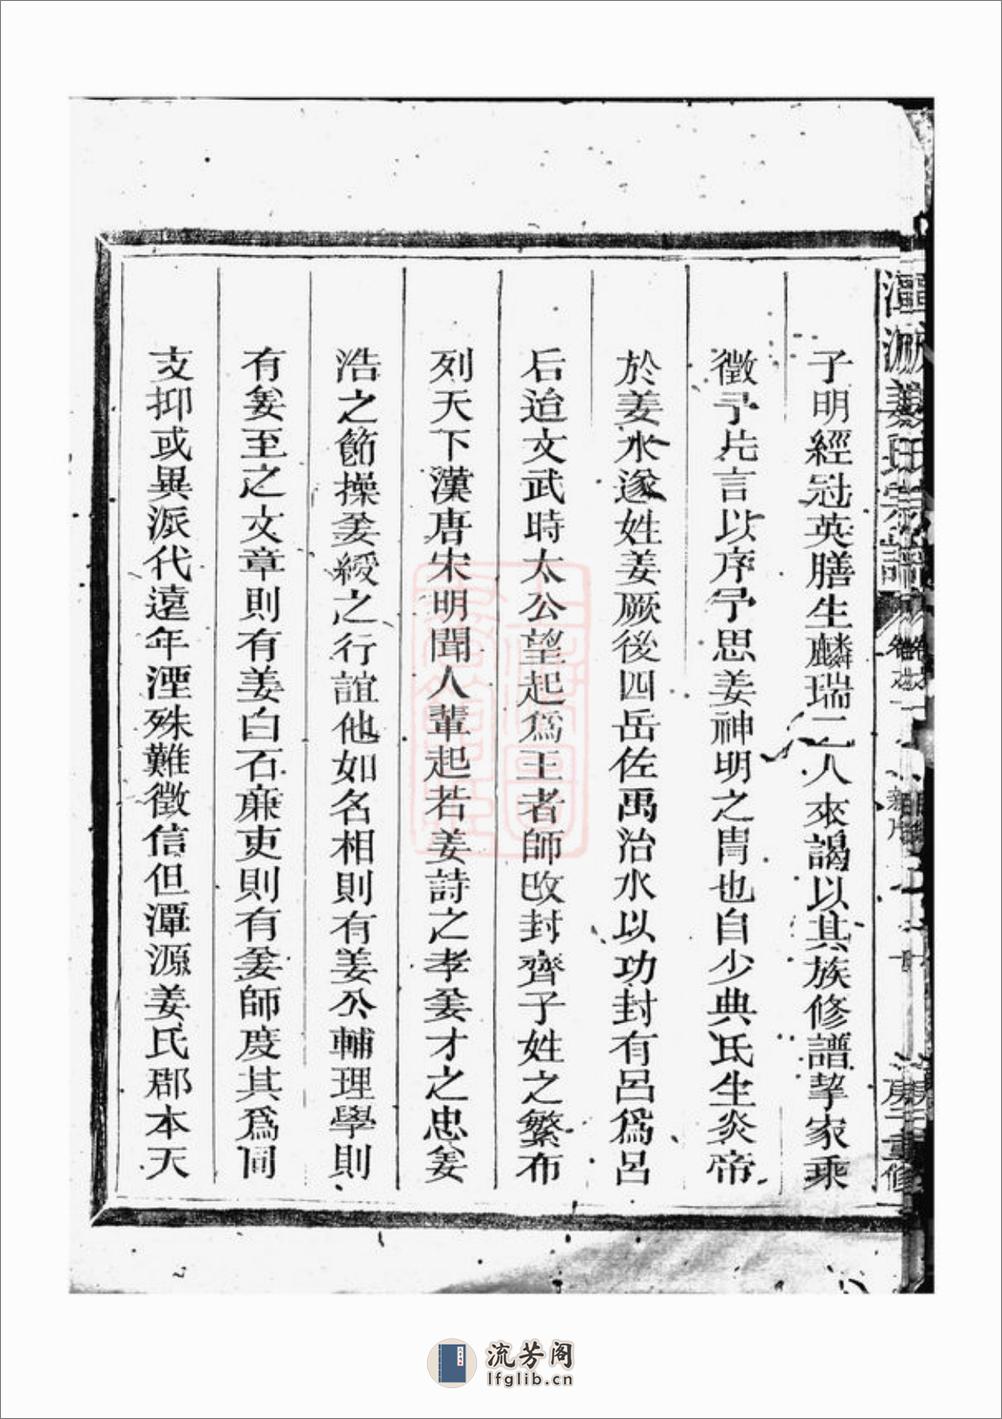 子明經冠英膳生麟瑞二人來謁以其族修譜挈家乘
徵予片言以序予思姜神明之胄也自少典氏生炎帝
於姜水遂姓姜厥後四岳佐禹治水以功封有呂爲呂
后迨文武時太公望起爲王者師改封齊子姓之繁布
列天下漢唐宋明聞人輩起若姜詩之孝姜才之忠姜
浩之節操姜綬之行誼他如名相則有姜公輔理學則
有姜至之文章則有姜白石廉吏則有姜師度其爲同
支抑或異派代遠年湮殊難徵信但潭源姜氏郡本天
姜氏宗譜
重修
流芳阁
lfglib.cn